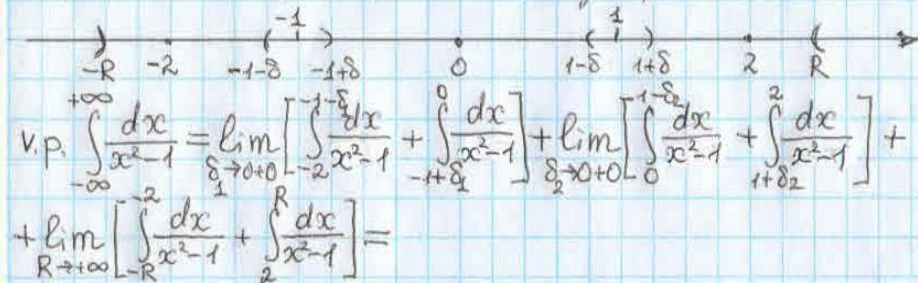 -1 1
-R -2 -1-δ -1+δ 0 1-δ 1+δ 2 R
v.p. ∫_{-∞}^{+∞} dx/(x²-1) = lim_{δ₁→0+0} [∫_{-2}^{-1-δ₁} dx/(x²-1) + ∫_{-1+δ₁}^{0} dx/(x²-1)] + lim_{δ₂→0+0} [∫_{0}^{1-δ₂} dx/(x²-1) + ∫_{1+δ₂}^{2} dx/(x²-1)] +
+ lim_{R→+∞} [∫_{-R}^{-2} dx/(x²-1) + ∫_{2}^{R} dx/(x²-1)] =